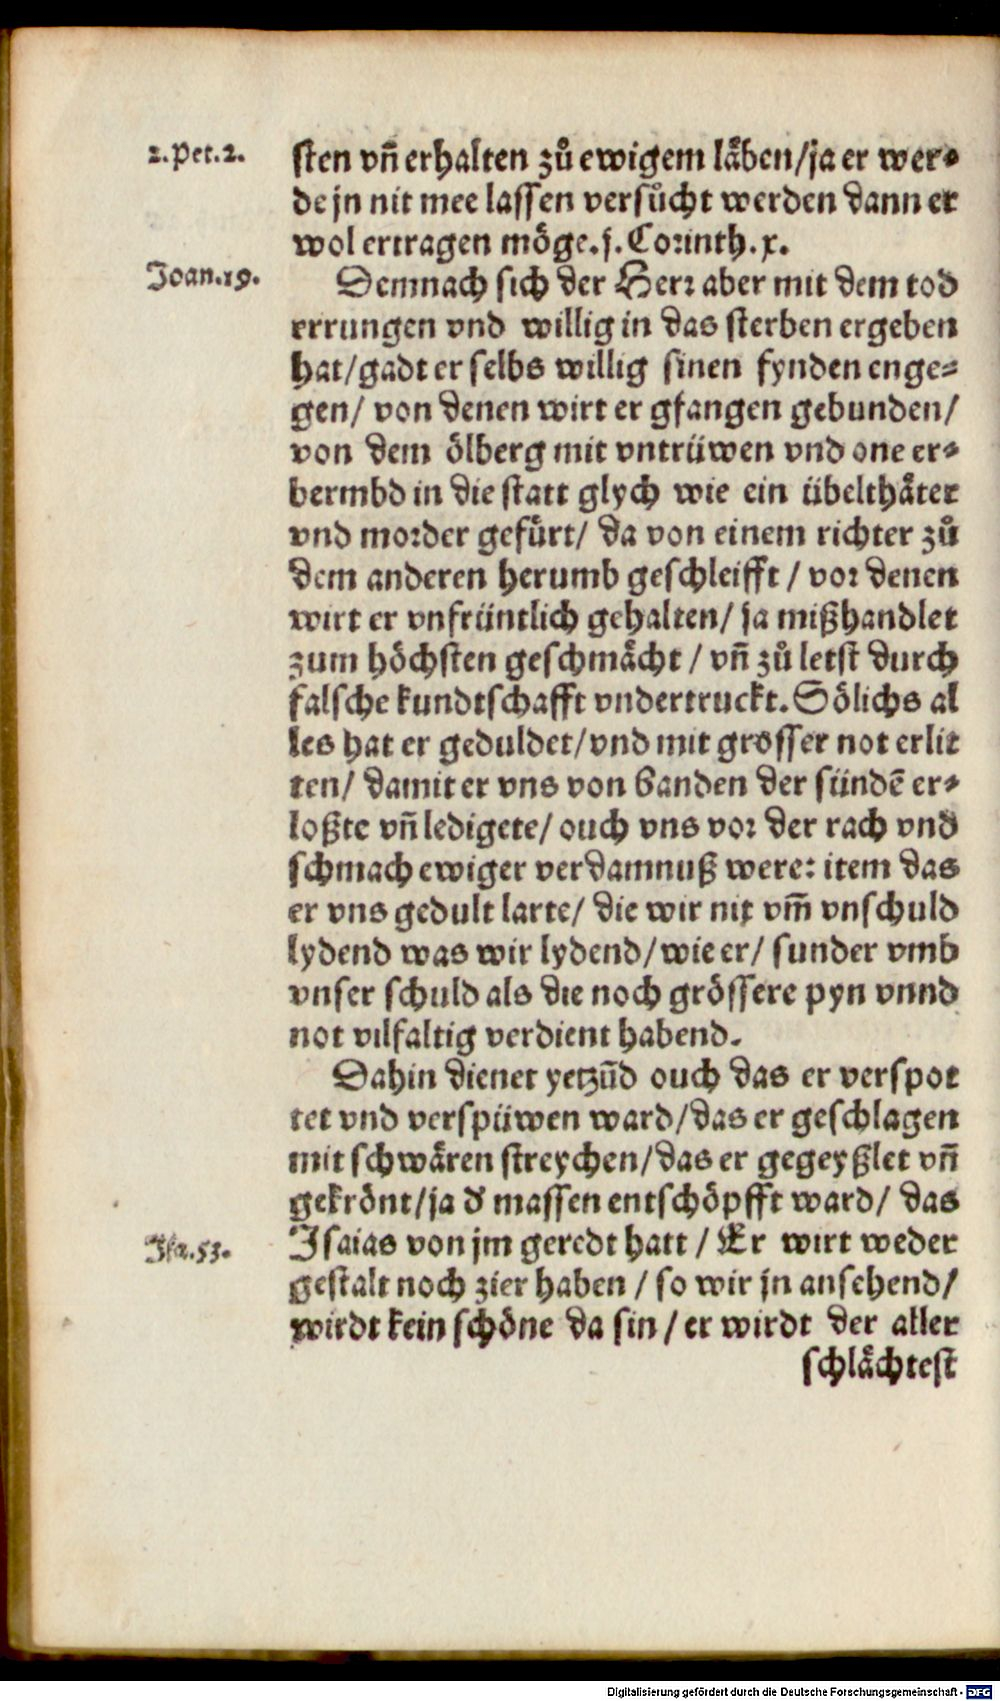 2.Pet.2.
sten vñ erhalten zů ewigem läben/ja er wer-
de jn nit mee lassen versůcht werden dann er
wol ertragen möge.j.Corinth.x.
Joan.19.
Demnach sich der Herr aber mit dem tod
errungen vnd willig in das sterben ergeben
hat/gadt er selbs willig sinen fynden enge-
gen/ von denen wirt er gfangen gebunden/
von dem ölberg mit vntrüwen vnd one er-
bermbd in die statt glych wie ein übelthäter
vnd morder gefürt/ da von einem richter zů
dem anderen herumb geschleifft / vor denen
wirt er vnfrüntlich gehalten/ ja mißhandlet
zum höchsten geschmächt / vñ zů letst durch
falsche kundtschafft vndertruckt. Sölichs al
les hat er geduldet/vnd mit grosser not erlit
ten/ damit er vns von banden der sündē er-
loßte vñ ledigete/ ouch vns vor der rach vnd
schmach ewiger verdamnuß were: item das
er vns gedult larte/ die wir nit vm̄ vnschuld
lydend was wir lydend/wie er/ sunder vmb
vnser schuld als die noch grössere pyn vnnd
not vilfaltig verdient habend.
Dahin dienet yetzūd ouch das er verspot
tet vnd verspüwen ward/das er geschlagen
mit schwären streychen/das er gegeyßlet vñ
gekrönt/ja d' massen entschöpfft ward/ das
Isa.53.
Isaias von jm geredt hatt / Er wirt weder
gestalt noch zier haben / so wir jn ansehend/
wirdt kein schöne da sin / er wirdt der aller
schlächtest
Digitalisierung gefördert durch die Deutsche Forschungsgemeinschaft - DFG